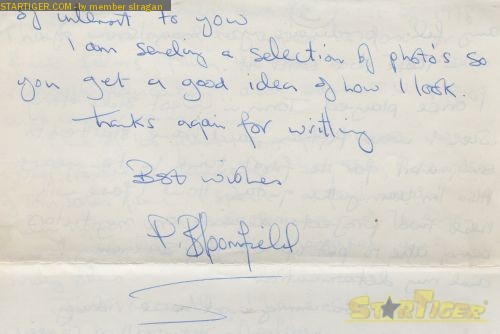 STARTIGER.COM - by member slragan
of interest to you
I am sending a selection of photo's so
you get a good idea of how I look.
thanks again for writting
Best wishes
P. Bloomfield
STARTIGER